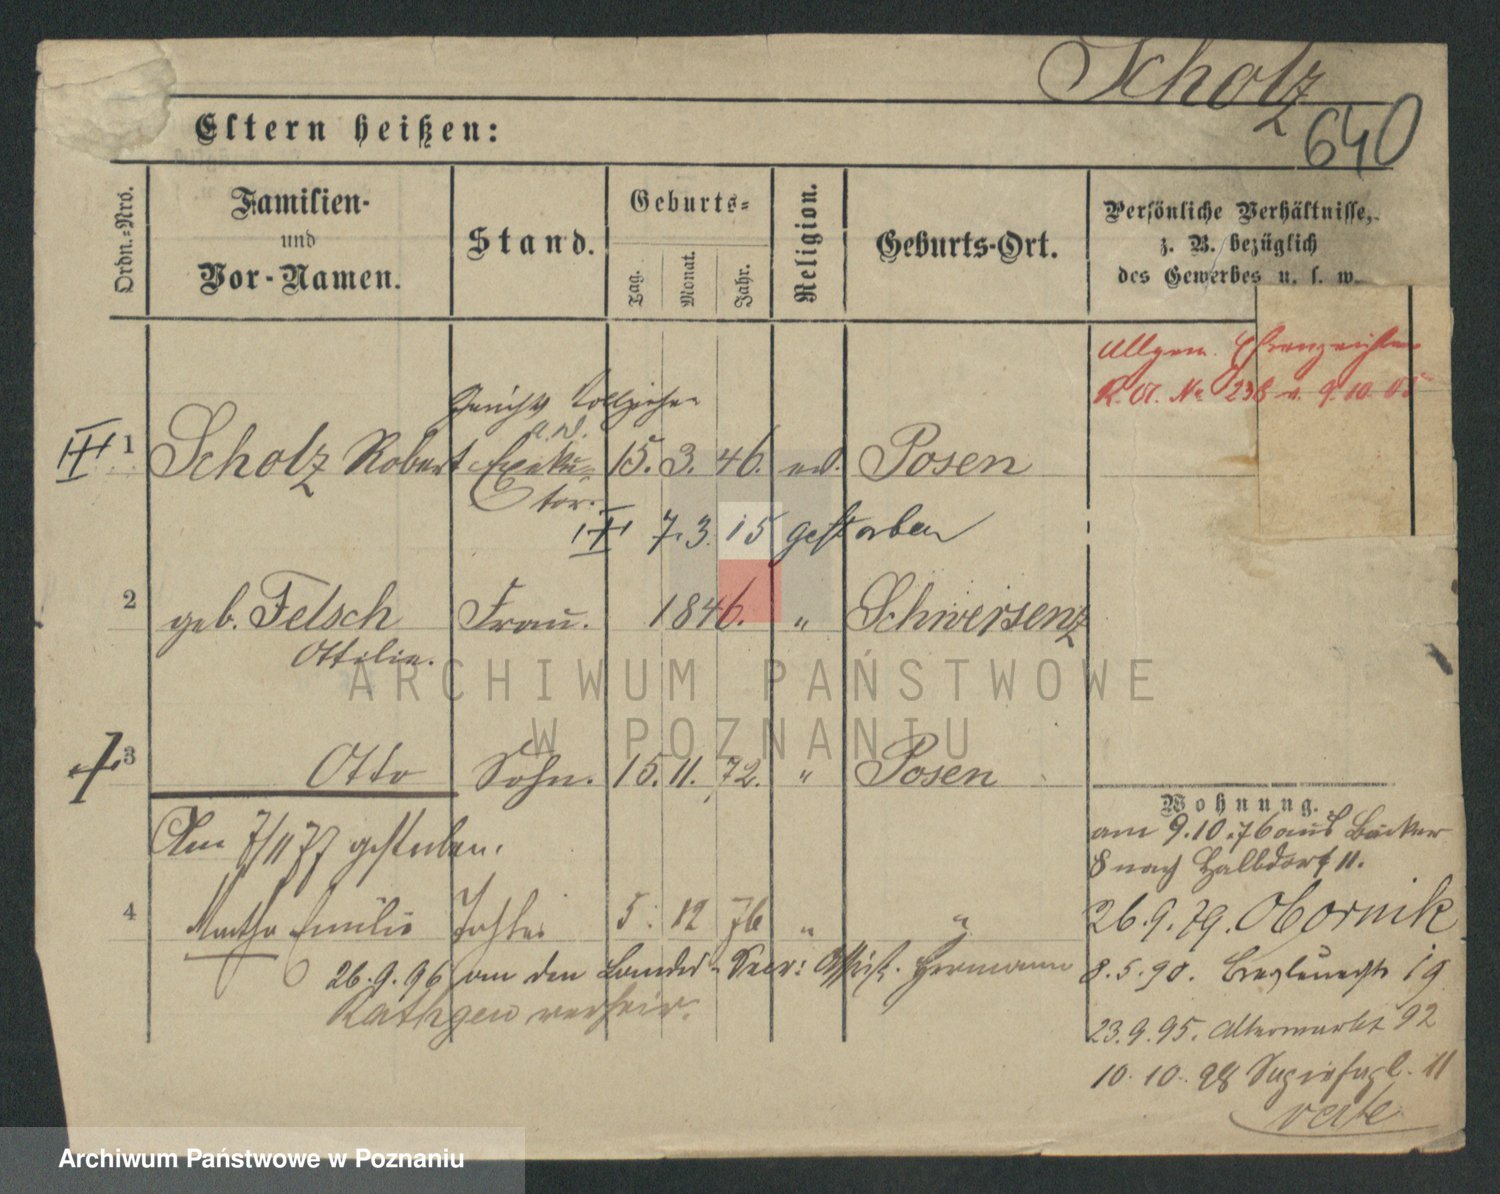 Scholz
640
Eltern heißen:
Ordn.-Nro.
Familien-
und
Vor-Namen.
Stand.
Geburts-
Tag.
Monat.
Jahr.
Religion.
Geburts-Ort.
Persönliche Verhältnisse,
z. B. bezüglich
des Gewerbes u. s. w.
Allgem. Ehrenzeichen
No 238 v. 9.10.05
Gerichts Vollzieher
a. D.
1 Scholz Robert Exeku- 15. 3. 46. ev. Posen
tor.
7. 3. 15 gestorben
2 geb. Felsch Frau. 1846. " Schwersenz
Ottilie.
ARCHIWUM PAŃSTWOWE
W POZNANIU
3 Otto Sohn. 15. 11. 72. " Posen
Wohnung.
Am 7/11 77 gestorben.
am 9.10.76 aus Bäcker
8 nach Halbdorf 11.
4 Martha Emilie Tochter 5. 12 76 " "
26.9.79. Obornik
26.9.96 an den Landes-Secr: Assist. Hermann
8.5.90. 19
Rathgen verheir.
23.9.95. Altermarkt 92
10.10.98 11
verte
Archiwum Państwowe w Poznaniu